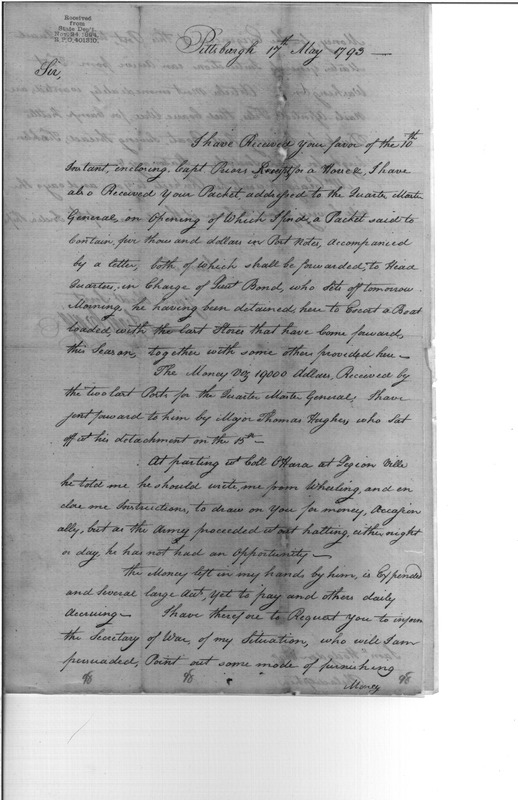 Received
from
State Dep't.
Nov. 24, 1894
R.P.O. 401810.
Pittsburgh 17th May 1793
Sir,
I have Received your favor of the 10th
Instant, inclosing Capt. Priors Receipt for a Horse &, I have
also Received your Packet addressed to the Quarter Master
General, on Opening of Which I find, a Packet said to
Contain, five thousand dollars in Post Notes, accompanied
by a letter, both of which shall be forwarded, to Head
Quarters, in Charge of Lieut Bond, who Sets off tomorrow
Morning, he having been detained here to Escort a Boat
loaded, with the last Stores that have Come forward,
this Season, together with some others provided here —
The Money Viz 19000 dollars, Received by
the two last Posts, for the Quarter Master General, I have
sent forward to him by Major Thomas Hughes, who Sat
off with his detachment on the 15th —
At parting with Coll O'Hara at Legion Ville
he told me he should write, me from Wheeling, and en
close me Instructions, to draw on you for money, Occasion
ally, but as the Army proceeded without halting, either night
or day, he has not had an Opportunity —
the Money left in my hands by him, is Expended
and Several large Acts, yet to pay and others daily
Accruing — I have therefore to Request you to inform
the Secretary of War, of my Situation, who will I am
persuaded, Point out some mode of furnishing
Money
98 98 98